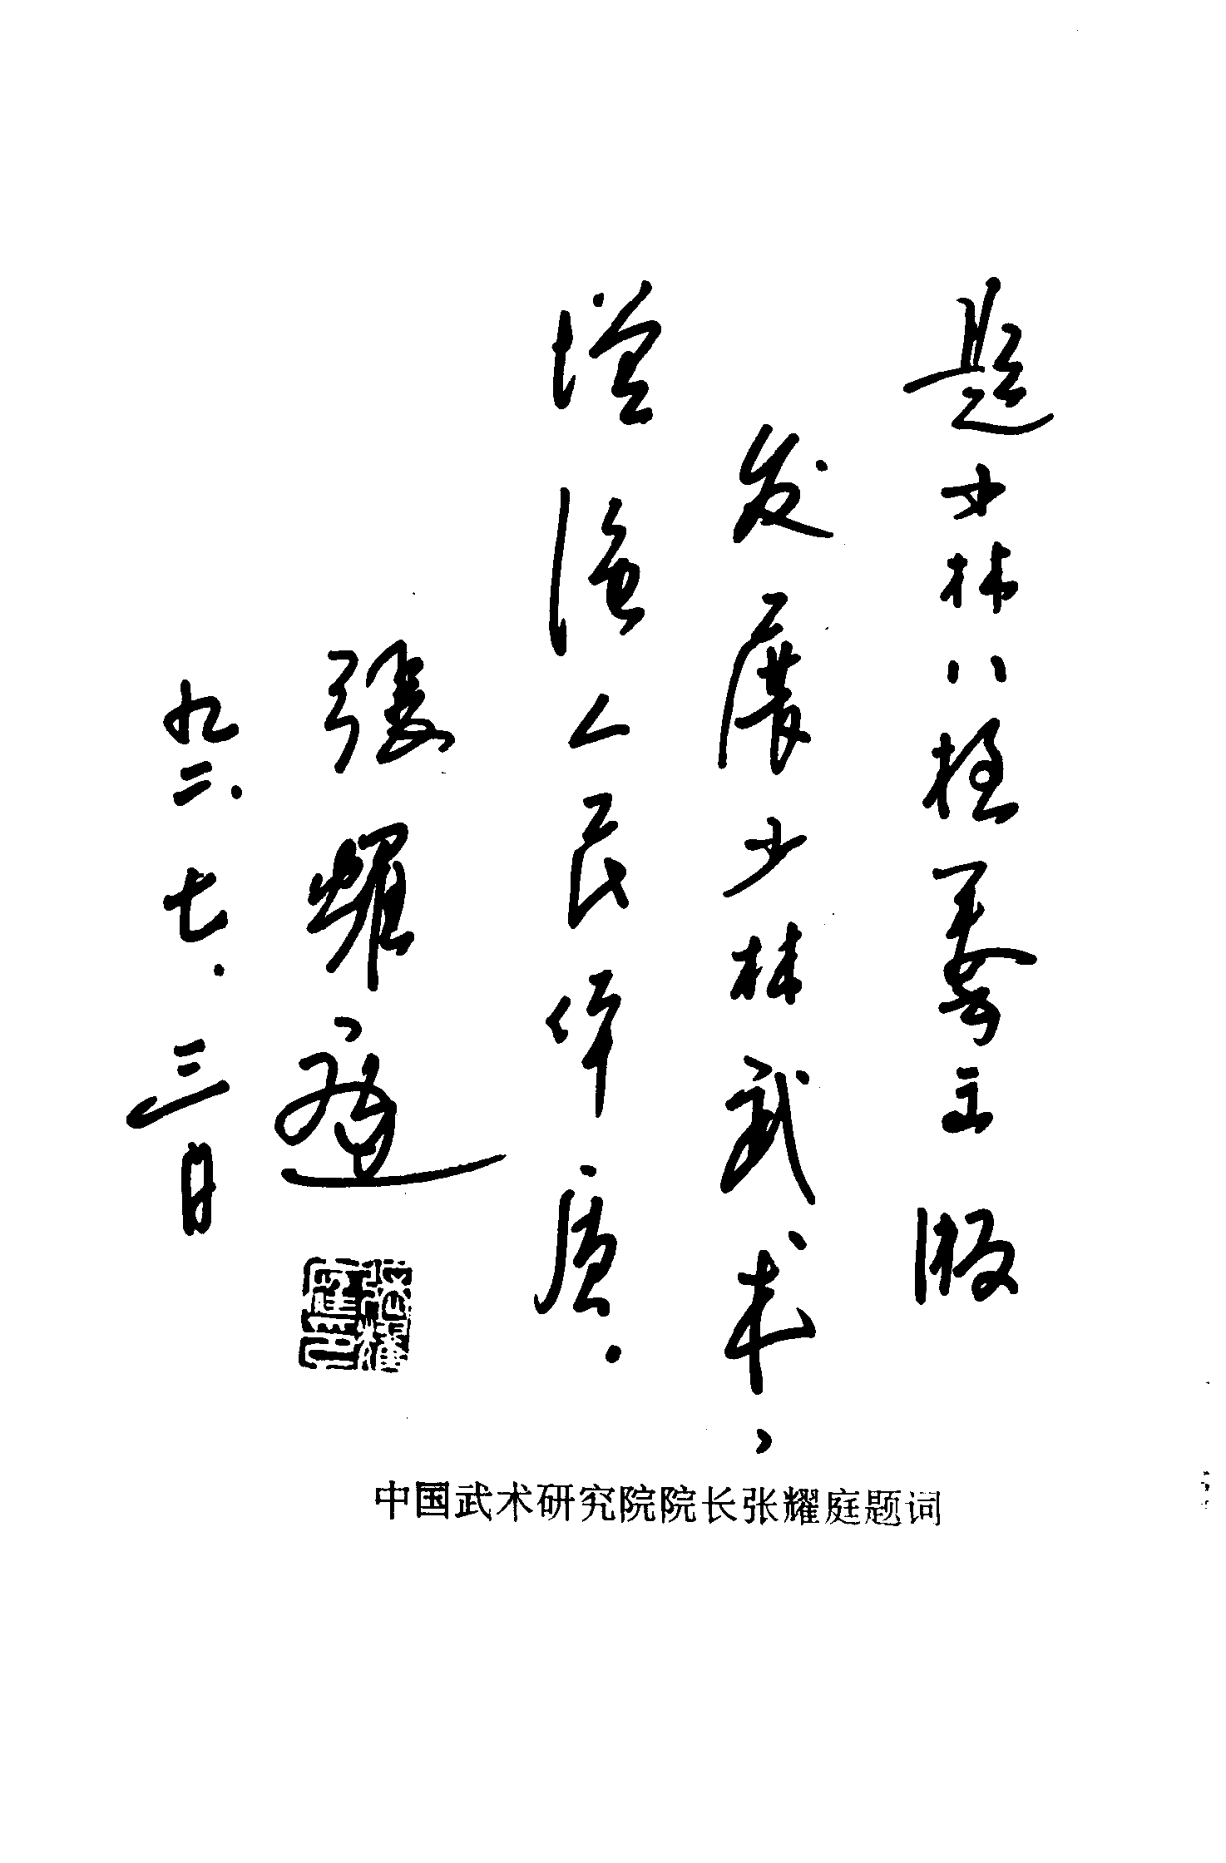 题少林八极拳出版
发展少林武术、
增强人民体质.
张耀庭
九二.七.三日
张耀庭印
中国武术研究院院长张耀庭题词